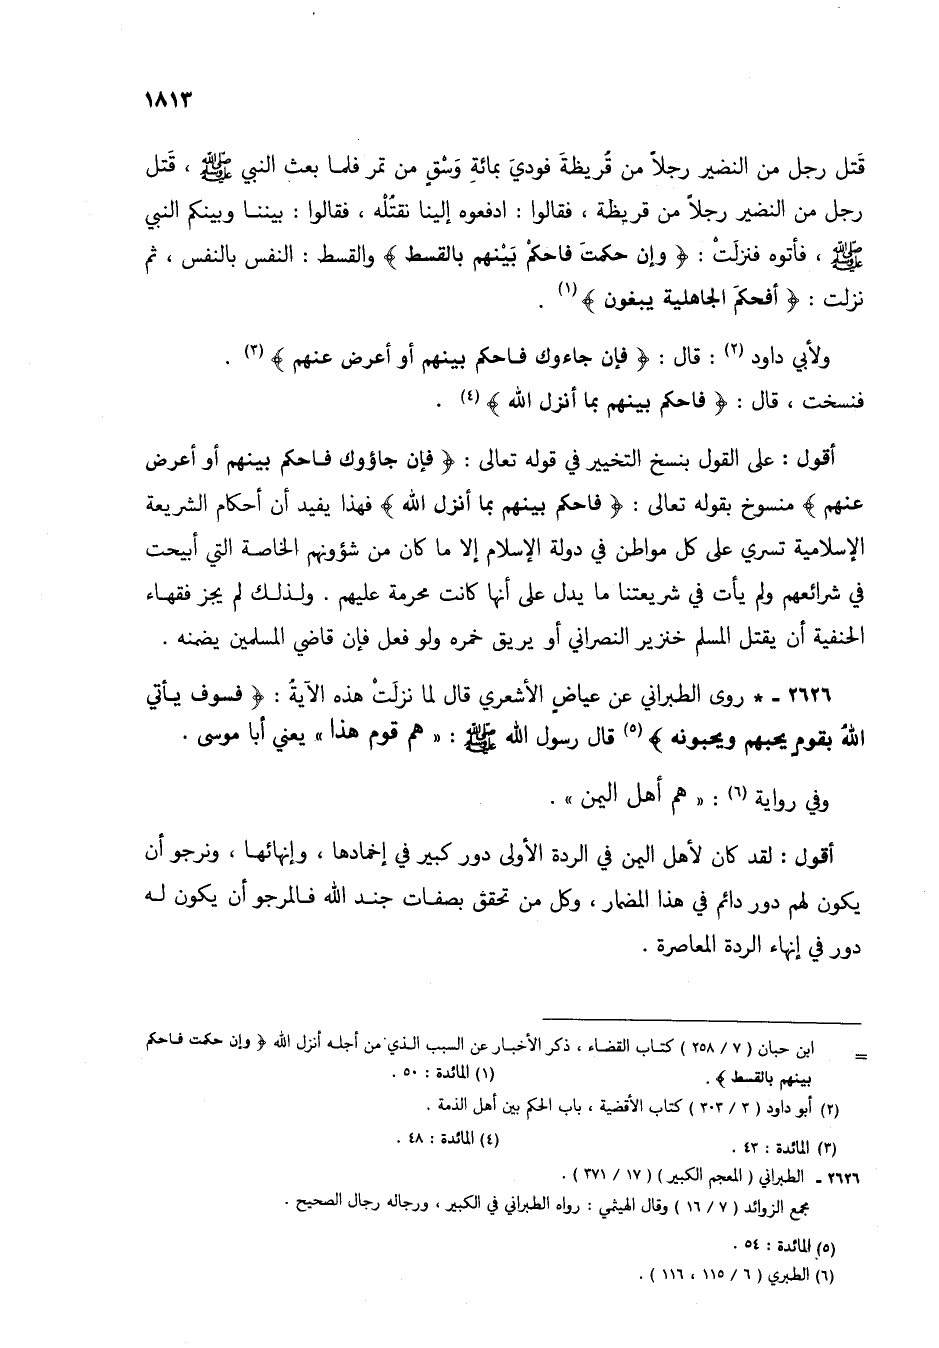 ١٨١٣
قَتل رجل من النضير رجلاً من قُريظةَ فوديَ بمائةِ وَسْقٍ من تمر فلما بعث النبي ﷺ ، قَتل
رجل من النضير رجلاً من قريظة ، فقالوا : ادفعوه إلينا نقتُلْه ، فقالوا : بيننا وبينكم النبي
ﷺ ، فأتوه فنزلَتْ : ﴿ وإن حكمتَ فاحكمْ بَيْنهم بالقسط ﴾ والقسط : النفس بالنفس ، ثم
نزلت : ﴿ أفحكمَ الجاهلية يبغون ﴾ (١) .
ولأبي داود (٢) : قال : ﴿ فإن جاءوك فاحكم بينهم أو أعرض عنهم ﴾ (٣) .
فنسخت ، قال : ﴿ فاحكم بينهم بما أنزل الله ﴾ (٤) .
أقول : على القول بنسخ التخيير في قوله تعالى : ﴿ فإن جاؤوك فاحكم بينهم أو أعرض
عنهم ﴾ منسوخ بقوله تعالى : ﴿ فاحكم بينهم بما أنزل الله ﴾ فهذا يفيد أن أحكام الشريعة
الإسلامية تسري على كل مواطن في دولة الإسلام إلا ما كان من شؤونهم الخاصة التي أبيحت
في شرائعهم ولم يأت في شريعتنا ما يدل على أنها كانت محرمة عليهم . ولذلك لم يجز فقهاء
الحنفية أن يقتل المسلم خنزير النصراني أو يريق خمره ولو فعل فإن قاضي المسلمين يضمنه .
٢٦٢٦ - * روى الطبراني عن عياضٍ الأشعري قال لما نزلَتْ هذه الآيةُ : ﴿ فسوف يأتي
اللهُ بقومٍ يحبهم ويحبونه ﴾ (٥) قال رسول الله ﷺ : « هم قوم هذا » يعني أبا موسى .
وفي رواية (٦) : « هم أهل اليمن » .
أقول : لقد كان لأهل اليمن في الردة الأولى دور كبير في إخمادها ، وإنهائها ، ونرجو أن
يكون لهم دور دائم في هذا المضمار ، وكل من تحقق بصفات جند الله فالمرجو أن يكون له
دور في إنهاء الردة المعاصرة .
= ابن حبان ( ٧ / ٢٥٨ ) كتاب القضاء ، ذكر الأخبار عن السبب الذي من أجله أنزل الله ﴿ وإن حكمت فاحكم
بينهم بالقسط ﴾ . (١) المائدة : ٥٠ .
(٢) أبو داود ( ٣ / ٣٠٣ ) كتاب الأقضية ، باب الحكم بين أهل الذمة .
(٣) المائدة : ٤٣ . (٤) المائدة : ٤٨ .
٢٦٢٦ - الطبراني ( المعجم الكبير ) ( ١٧ / ٣٧١ ) .
مجمع الزوائد ( ٧ / ١٦ ) وقال الهيثمي : رواه الطبراني في الكبير ، ورجاله رجال الصحيح .
(٥) المائدة : ٥٤ .
(٦) الطبري ( ٦ / ١١٥ ، ١١٦ ) .